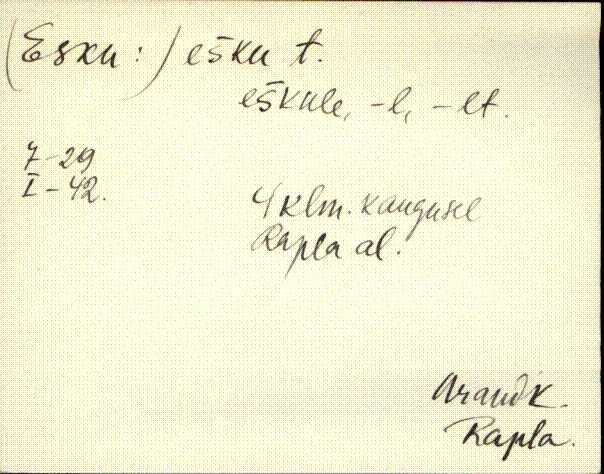 (Esku:) ešku t.
eškule, -l, -lt.
7-29
I-42.
4 klm. kaugusel
Rapla al.
Rapla.